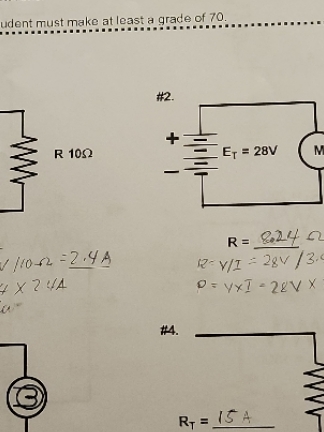 udent must make at least a grade of 70.
#2.
+
R 10Ω
E_T = 28V
M
−
R = 8.24 Ω
V/10Ω = 2.4A
R = V/I = 28V / 3.
4 X 2.4A
P = V x I = 28V X
#4.
R_T = 15 A